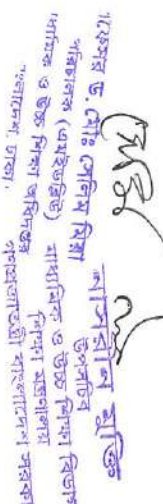 প্রফেসর ড. মোঃ সেলিম মিয়া
পরিচালক
মাধ্যমিক ও উচ্চ শিক্ষা অধিদপ্তর
বাংলাদেশ, ঢাকা।
নাসরীন মুক্তি
উপসচিব
মাধ্যমিক ও উচ্চ শিক্ষা বিভাগ
শিক্ষা মন্ত্রণালয়
গণপ্রজাতন্ত্রী বাংলাদেশ সরকার